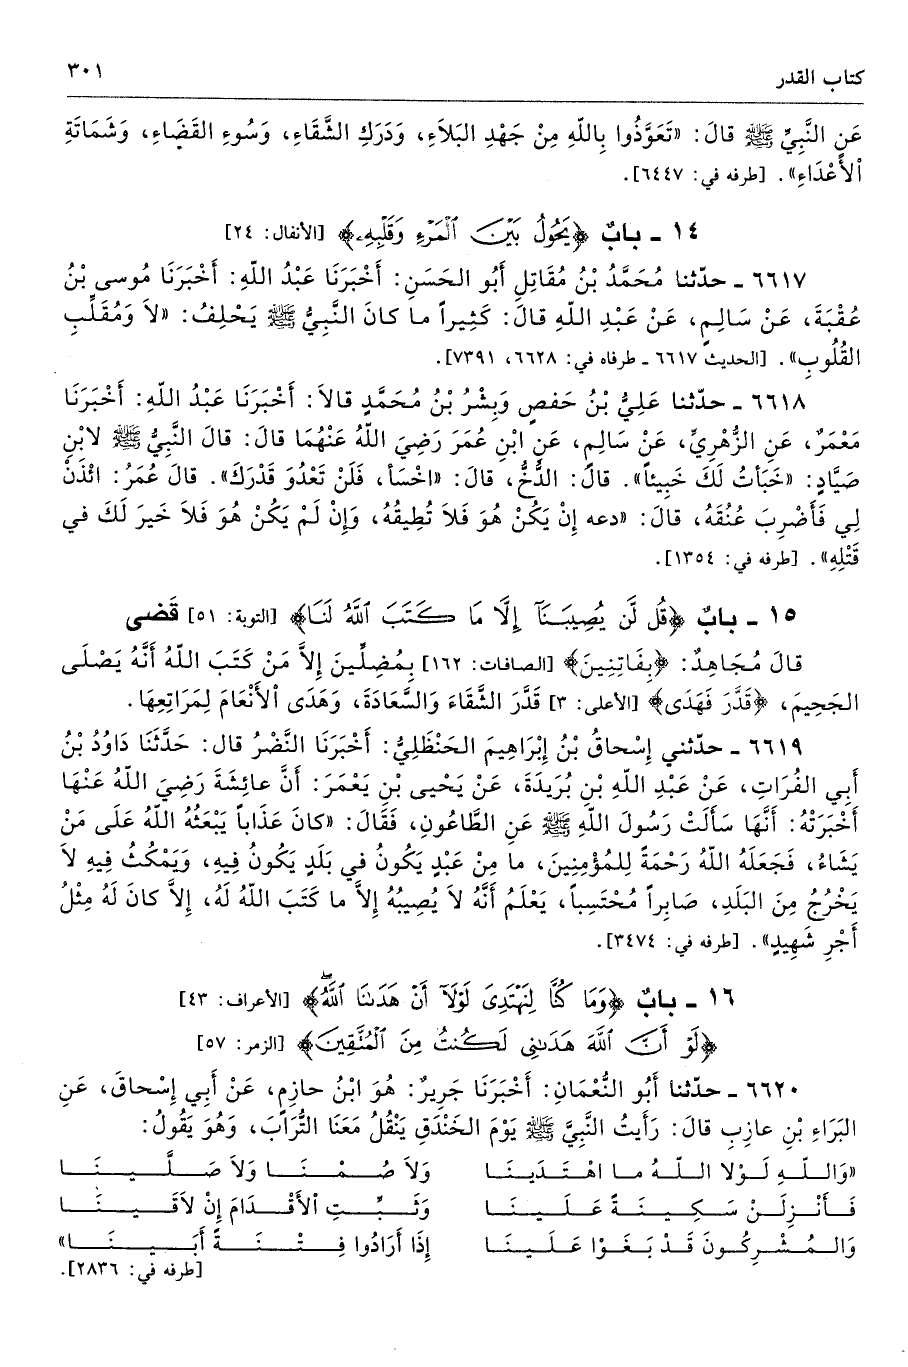 كتاب القدر
٣٠١
عَنِ النَّبِيِّ ﷺ قالَ: «تَعَوَّذُوا بِاللّهِ مِنْ جَهْدِ البَلاَءِ، وَدَرَكِ الشَّقَاءِ، وَسُوءِ القَضَاءِ، وَشَمَاتَةِ
الأَعْدَاءِ». [طرفه في: ٦٤٤٧].
١٤ ـ بابٌ ﴿يَحُولُ بَيْنَ ٱلْمَرْءِ وَقَلْبِهِۦ﴾ [الأنفال: ٢٤]
٦٦١٧ ـ حدّثنا مُحَمَّدُ بْنُ مُقَاتِلٍ أَبُو الحَسَنِ: أَخْبَرَنَا عَبْدُ اللّهِ: أَخْبَرَنَا مُوسى بْنُ
عُقْبَةَ، عَنْ سَالِمٍ، عَنْ عَبْدِ اللّهِ قالَ: كَثِيراً ما كانَ النَّبِيُّ ﷺ يَحْلِفُ: «لاَ وَمُقَلِّبِ
القُلُوبِ». [الحديث ٦٦١٧ ـ طرفاه في: ٦٦٢٨، ٧٣٩١].
٦٦١٨ ـ حدّثنا عَلِيُّ بْنُ حَفصٍ وَبِشْرُ بْنُ مُحَمَّدٍ قالاَ: أَخْبَرَنَا عَبْدُ اللّهِ: أَخْبَرَنَا
مَعْمَرٌ، عَنِ الزُّهْرِيِّ، عَنْ سَالِمٍ، عَنِ ابْنِ عُمَرَ رَضِيَ اللّهُ عَنْهُمَا قالَ: قالَ النَّبِيُّ ﷺ لابْنِ
صَيَّادٍ: «خَبَأتُ لَكَ خَبِيئاً». قالَ: الدُّخُّ، قالَ: «اخْسَأ، فَلَنْ تَعْدُوَ قَدْرَكَ». قالَ عُمَرُ: ائْذَنْ
لِي فَأَضْرِبَ عُنُقَهُ، قالَ: «دعه إِنْ يَكُنْ هُوَ فَلاَ تُطِيقُهُ، وَإِنْ لَمْ يَكُنْ هُوَ فَلاَ خَيرَ لَكَ في
قَتْلِهِ». [طرفه في: ١٣٥٤].
١٥ ـ بابٌ ﴿قُل لَّن يُصِيبَنَآ إِلَّا مَا كَتَبَ ٱللَّهُ لَنَا﴾ [التوبة: ٥١] قَضى
قالَ مُجَاهِدٌ: ﴿بِفَاتِنِينَ﴾ [الصافات: ١٦٢] بِمُضِلِّينَ إِلاَّ مَنْ كَتَبَ اللّهُ أَنَّهُ يَصْلَى
الجَحِيمَ، ﴿قَدَّرَ فَهَدَى﴾ [الأعلى: ٣] قَدَّرَ الشَّقَاءَ وَالسَّعَادَةَ، وَهَدَى الأَنْعَامَ لِمَرَاتِعِهَا.
٦٦١٩ ـ حدّثني إِسْحاقُ بْنُ إِبْرَاهِيمَ الحَنْظَلِيُّ: أَخْبَرَنَا النَّضْرُ قال: حَدَّثَنَا دَاوُدُ بْنُ
أَبِي الفُرَاتِ، عَنْ عَبْدِ اللّهِ بْنِ بُرَيدَةَ، عَنْ يَحْيى بْنِ يَعْمَرَ: أَنَّ عائِشَةَ رَضِيَ اللّهُ عَنْهَا
أَخْبَرَتْهُ: أَنَّهَا سَأَلَتْ رَسُولَ اللّهِ ﷺ عَنِ الطَّاعُونِ، فَقَالَ: «كانَ عَذَاباً يَبْعَثُهُ اللّهُ عَلَى مَنْ
يَشَاءُ، فَجَعَلَهُ اللّهُ رَحْمَةً لِلمُؤْمِنِينَ، ما مِنْ عَبْدٍ يَكُونُ في بَلَدٍ يَكُونُ فِيهِ، وَيَمْكُثُ فِيهِ لاَ
يَخْرُجُ مِنَ البَلَدِ، صَابِراً مُحْتَسِباً، يَعْلَمُ أَنَّهُ لاَ يُصِيبُهُ إِلاَّ ما كَتَبَ اللّهُ لَهُ، إِلاَّ كانَ لَهُ مِثْلُ
أَجْرِ شَهِيدٍ». [طرفه في: ٣٤٧٤].
١٦ ـ بابٌ ﴿وَمَا كُنَّا لِنَهْتَدِىَ لَوْلَآ أَنْ هَدَىٰنَا ٱللَّهُۖ﴾ [الأعراف: ٤٣]
﴿لَوْ أَنَّ ٱللَّهَ هَدَىٰنِى لَكُنتُ مِنَ ٱلْمُتَّقِينَ﴾ [الزمر: ٥٧]
٦٦٢٠ ـ حدّثنا أَبُو النُّعْمَانِ: أَخْبَرَنَا جَرِيرٌ: هُوَ ابْنُ حازِمٍ، عَنْ أَبِي إِسْحاقَ، عَنِ
البَرَاءِ بْنِ عازِبٍ قالَ: رَأَيتُ النَّبِيَّ ﷺ يَوْمَ الخَنْدَقِ يَنْقُلُ مَعَنَا التُّرَابَ، وَهُوَ يَقُولُ:
«وَاللّهِ لَوْلا اللّهُ ما اهْتَدَينَا وَلاَ صُمْنَا وَلاَ صَلَّينَا
فَأَنْزِلَنْ سَكِينَةً عَلَينَا وَثَبِّتِ الأَقْدَامَ إِنْ لاَقَينَا
وَالمُشْرِكُونَ قَدْ بَغَوْا عَلَينَا إِذَا أَرَادُوا فِتْنَةً أَبَينَا»
[طرفه في: ٢٨٣٦].